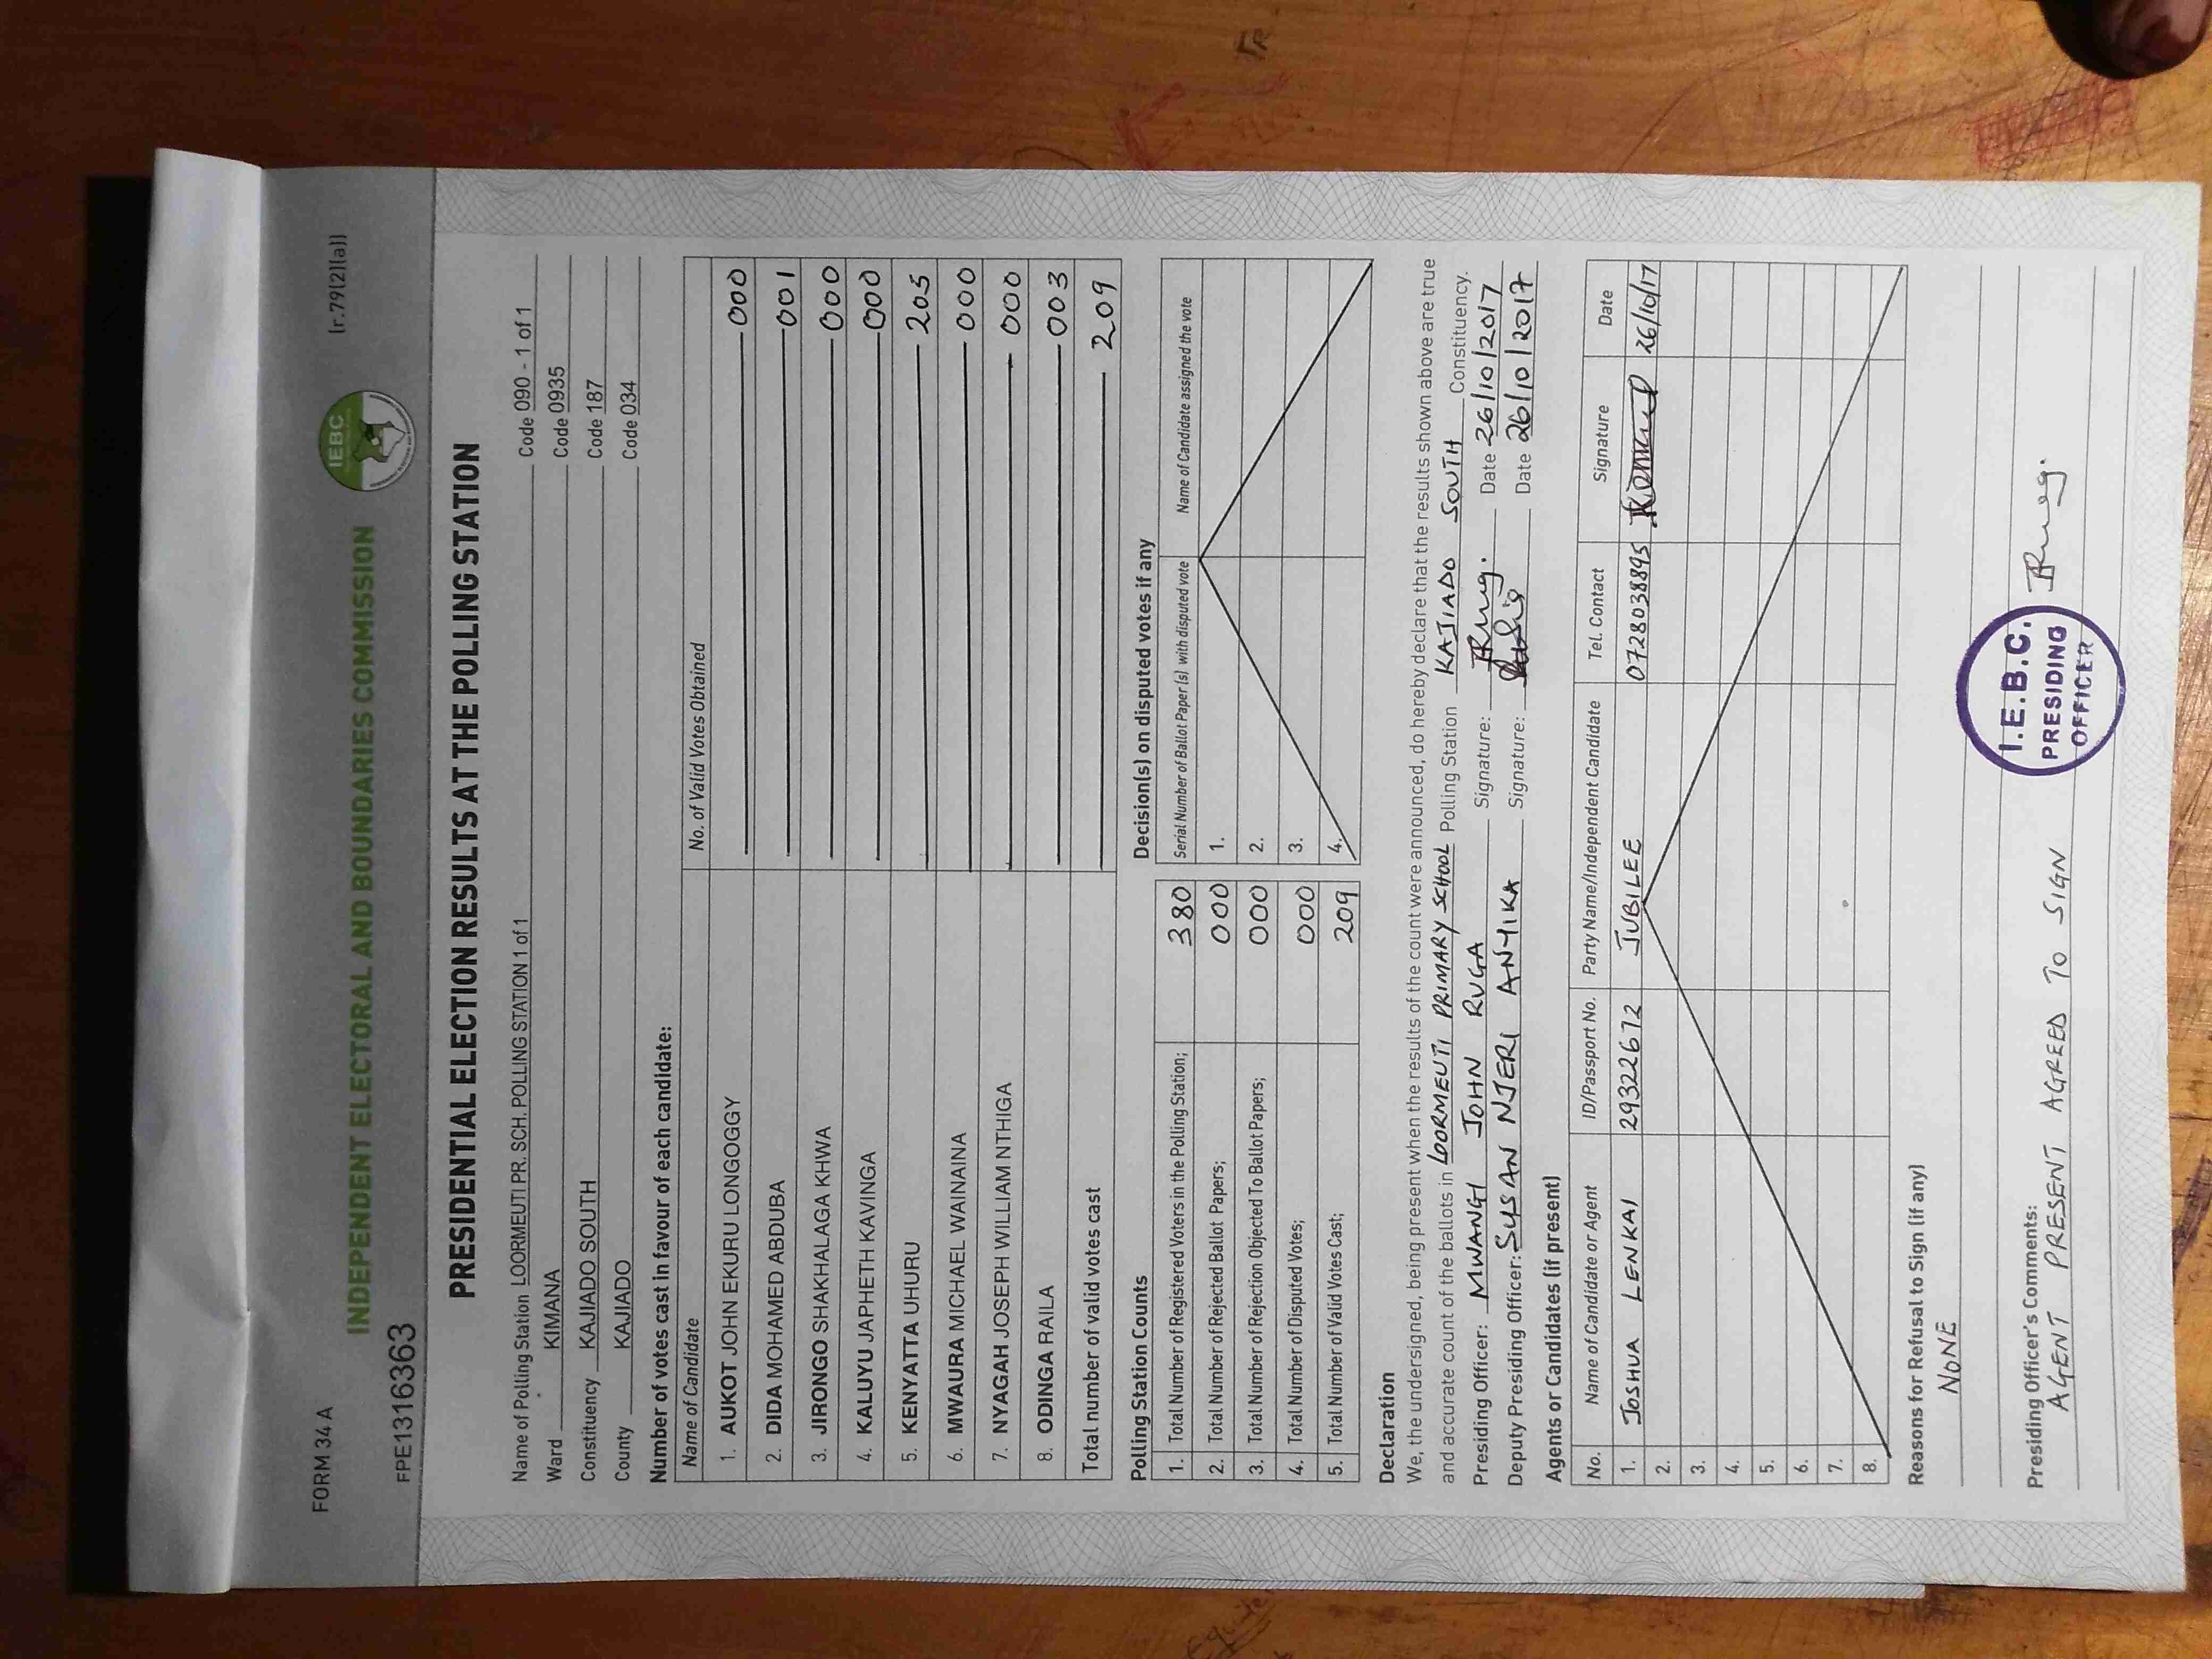 FORM 34 A
(r.79(2)(a))
INDEPENDENT ELECTORAL AND BOUNDARIES COMMISSION
IEBC
FPE1316363
PRESIDENTIAL ELECTION RESULTS AT THE POLLING STATION
Name of Polling Station LOORMEUTI PR. SCH. POLLING STATION 1 of 1 Code 090 - 1 of 1
Ward KIMANA Code 0935
Constituency KAJIADO SOUTH Code 187
County KAJIADO Code 034
Number of votes cast in favour of each candidate:
Name of Candidate No. of Valid Votes Obtained
1. AUKOT JOHN EKURU LONGOGGY 000
2. DIDA MOHAMED ABDUBA 001
3. JIRONGO SHAKHALAGA KHWA 000
4. KALUYU JAPHETH KAVINGA 000
5. KENYATTA UHURU 205
6. MWAURA MICHAEL WAINAINA 000
7. NYAGAH JOSEPH WILLIAM NTHIGA 000
8. ODINGA RAILA 003
Total number of valid votes cast 209
Polling Station Counts
1. Total Number of Registered Voters in the Polling Station; 380
2. Total Number of Rejected Ballot Papers; 000
3. Total Number of Rejection Objected To Ballot Papers; 000
4. Total Number of Disputed Votes; 000
5. Total Number of Valid Votes Cast; 209
Decision(s) on disputed votes if any
Serial Number of Ballot Paper (s) with disputed vote Name of Candidate assigned the vote
1.
2.
3.
4.
Declaration
We, the undersigned, being present when the results of the count were announced, do hereby declare that the results shown above are true
and accurate count of the ballots in LOORMEUTI PRIMARY SCHOOL Polling Station KAJIADO SOUTH Constituency.
Presiding Officer: MWANGI JOHN RUGA Signature: Date 26/10/2017
Deputy Presiding Officer: SUSAN NJERI ANYIKA Signature: Date 26/10/2017
Agents or Candidates (if present)
No. Name of Candidate or Agent ID/Passport No. Party Name/Independent Candidate Tel. Contact Signature Date
1. JOSHUA LENKAI 29322672 JUBILEE 0728038895 26/10/17
2.
3.
4.
5.
6.
7.
8.
Reasons for Refusal to Sign (if any)
NONE
Presiding Officer's Comments:
AGENT PRESENT AGREED TO SIGN
I.E.B.C.
PRESIDING
OFFICER